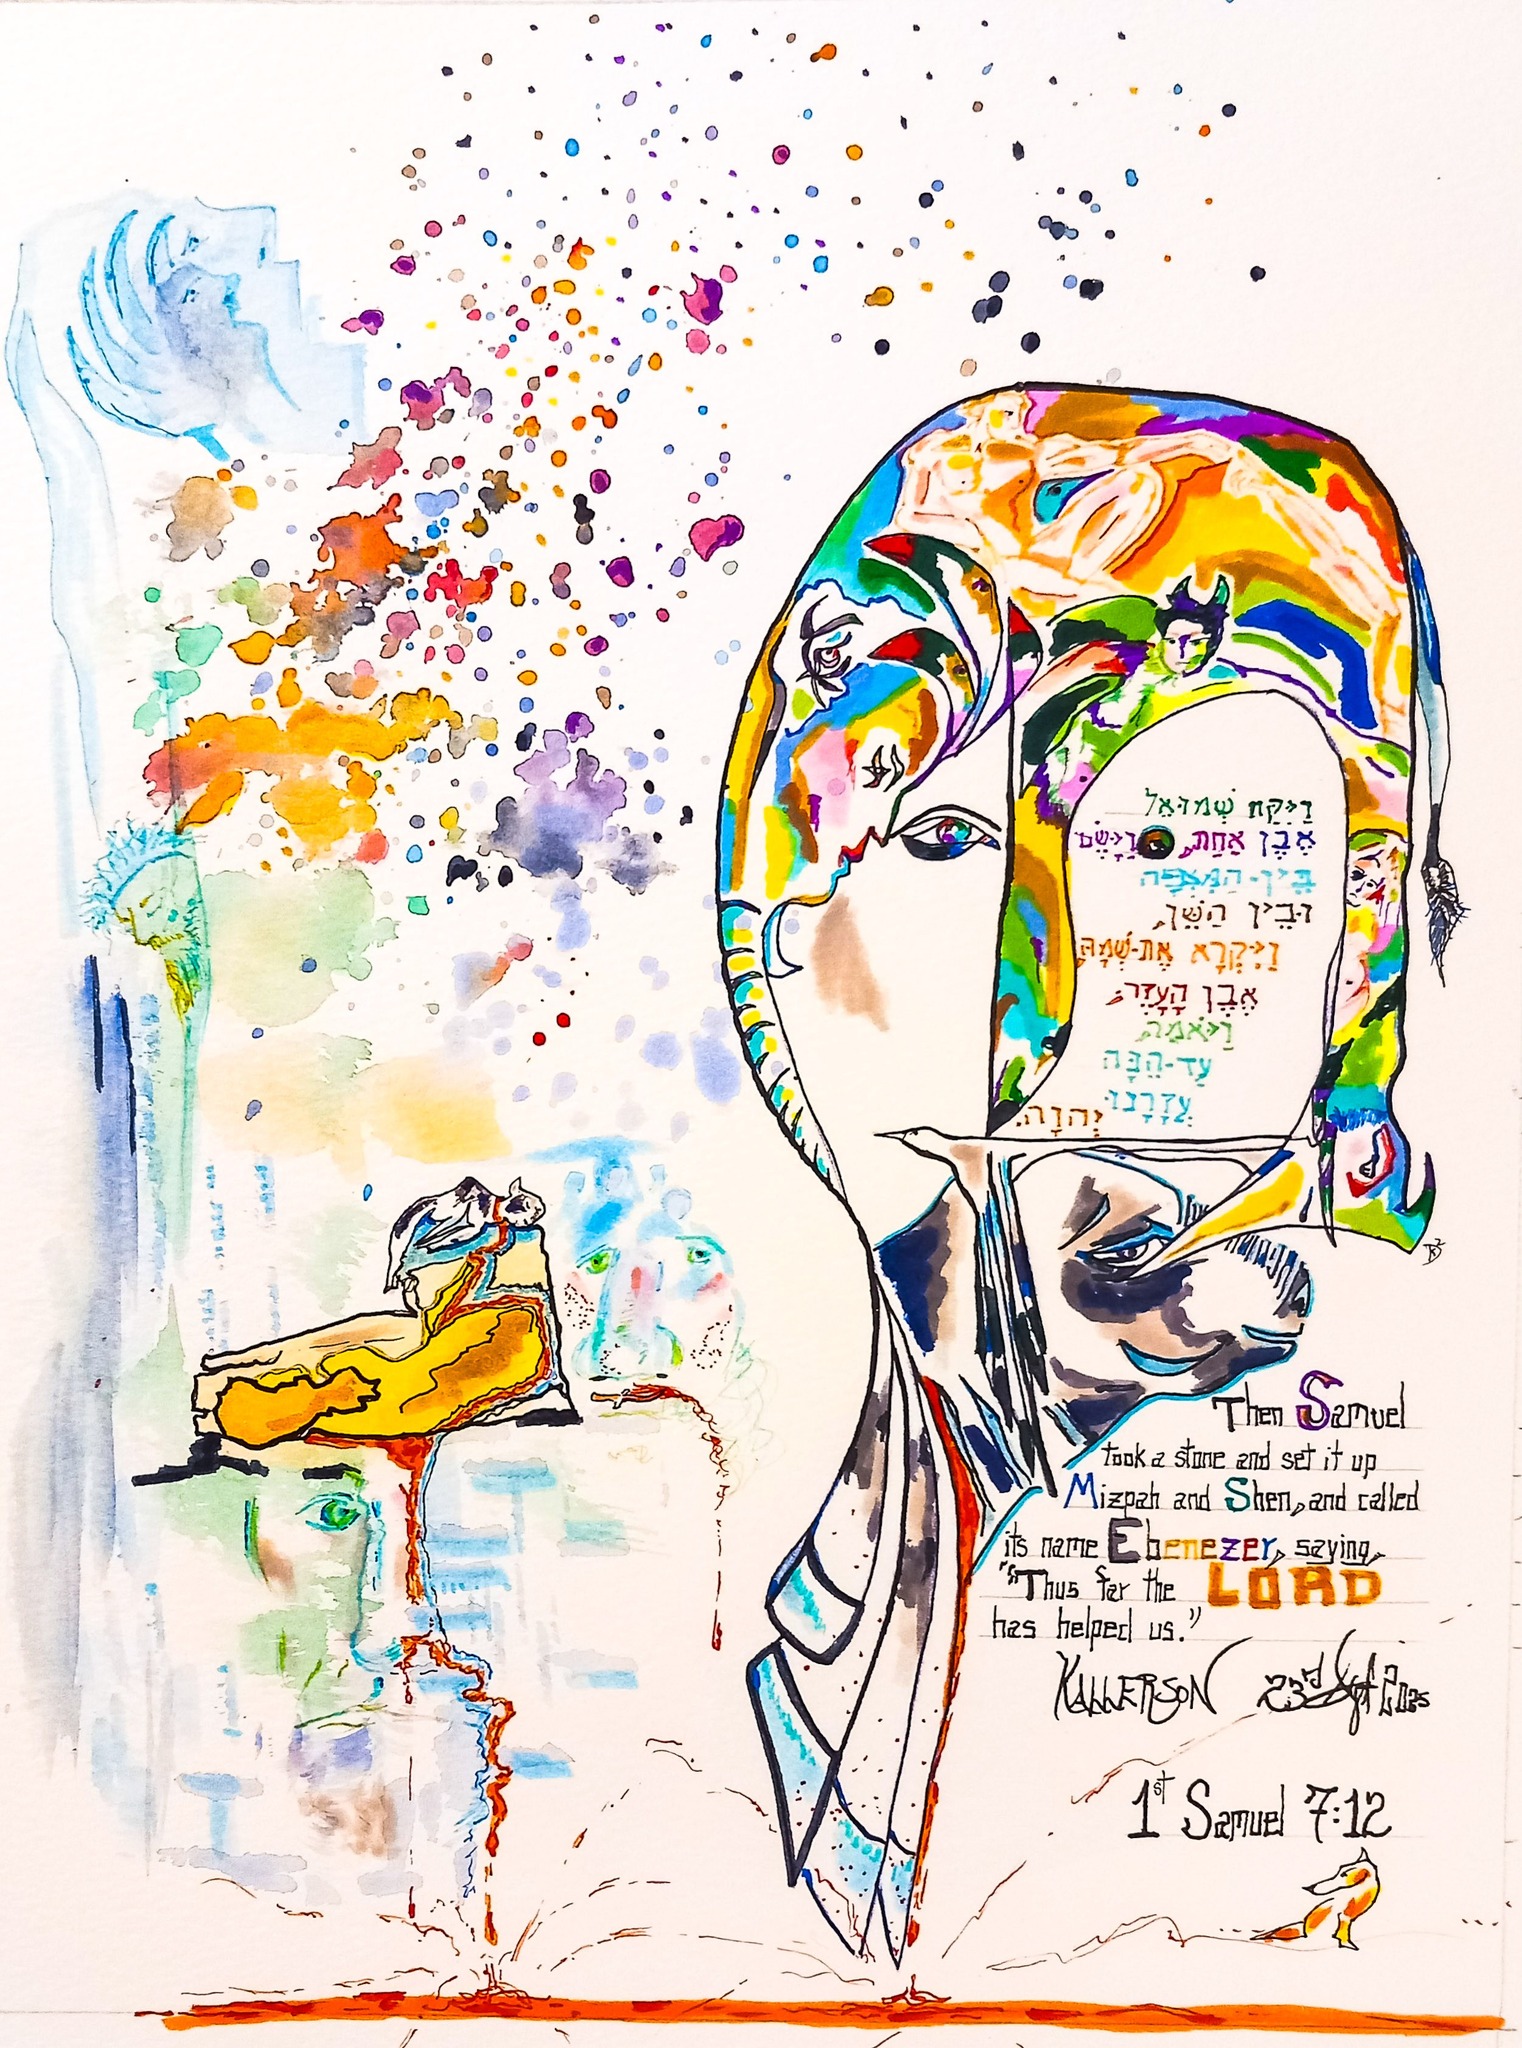 וַיִּקַּח שְׁמוּאֵל
אֶבֶן אַחַת, וַיָּשֶׂם
בֵּין-הַמִּצְפָּה
וּבֵין הַשֵּׁן,
וַיִּקְרָא אֶת-שְׁמָהּ,
אֶבֶן הָעָזֶר;
וַיֹּאמַר,
עַד-הֵנָּה
עֲזָרָנוּ
יְהוָה.
Then Samuel
took a stone and set it up
Mizpah and Shen, and called
its name Ebenezer, saying,
"Thus far the LORD
has helped us."
KALLERSON 23rd Sept 2025
1st Samuel 7:12